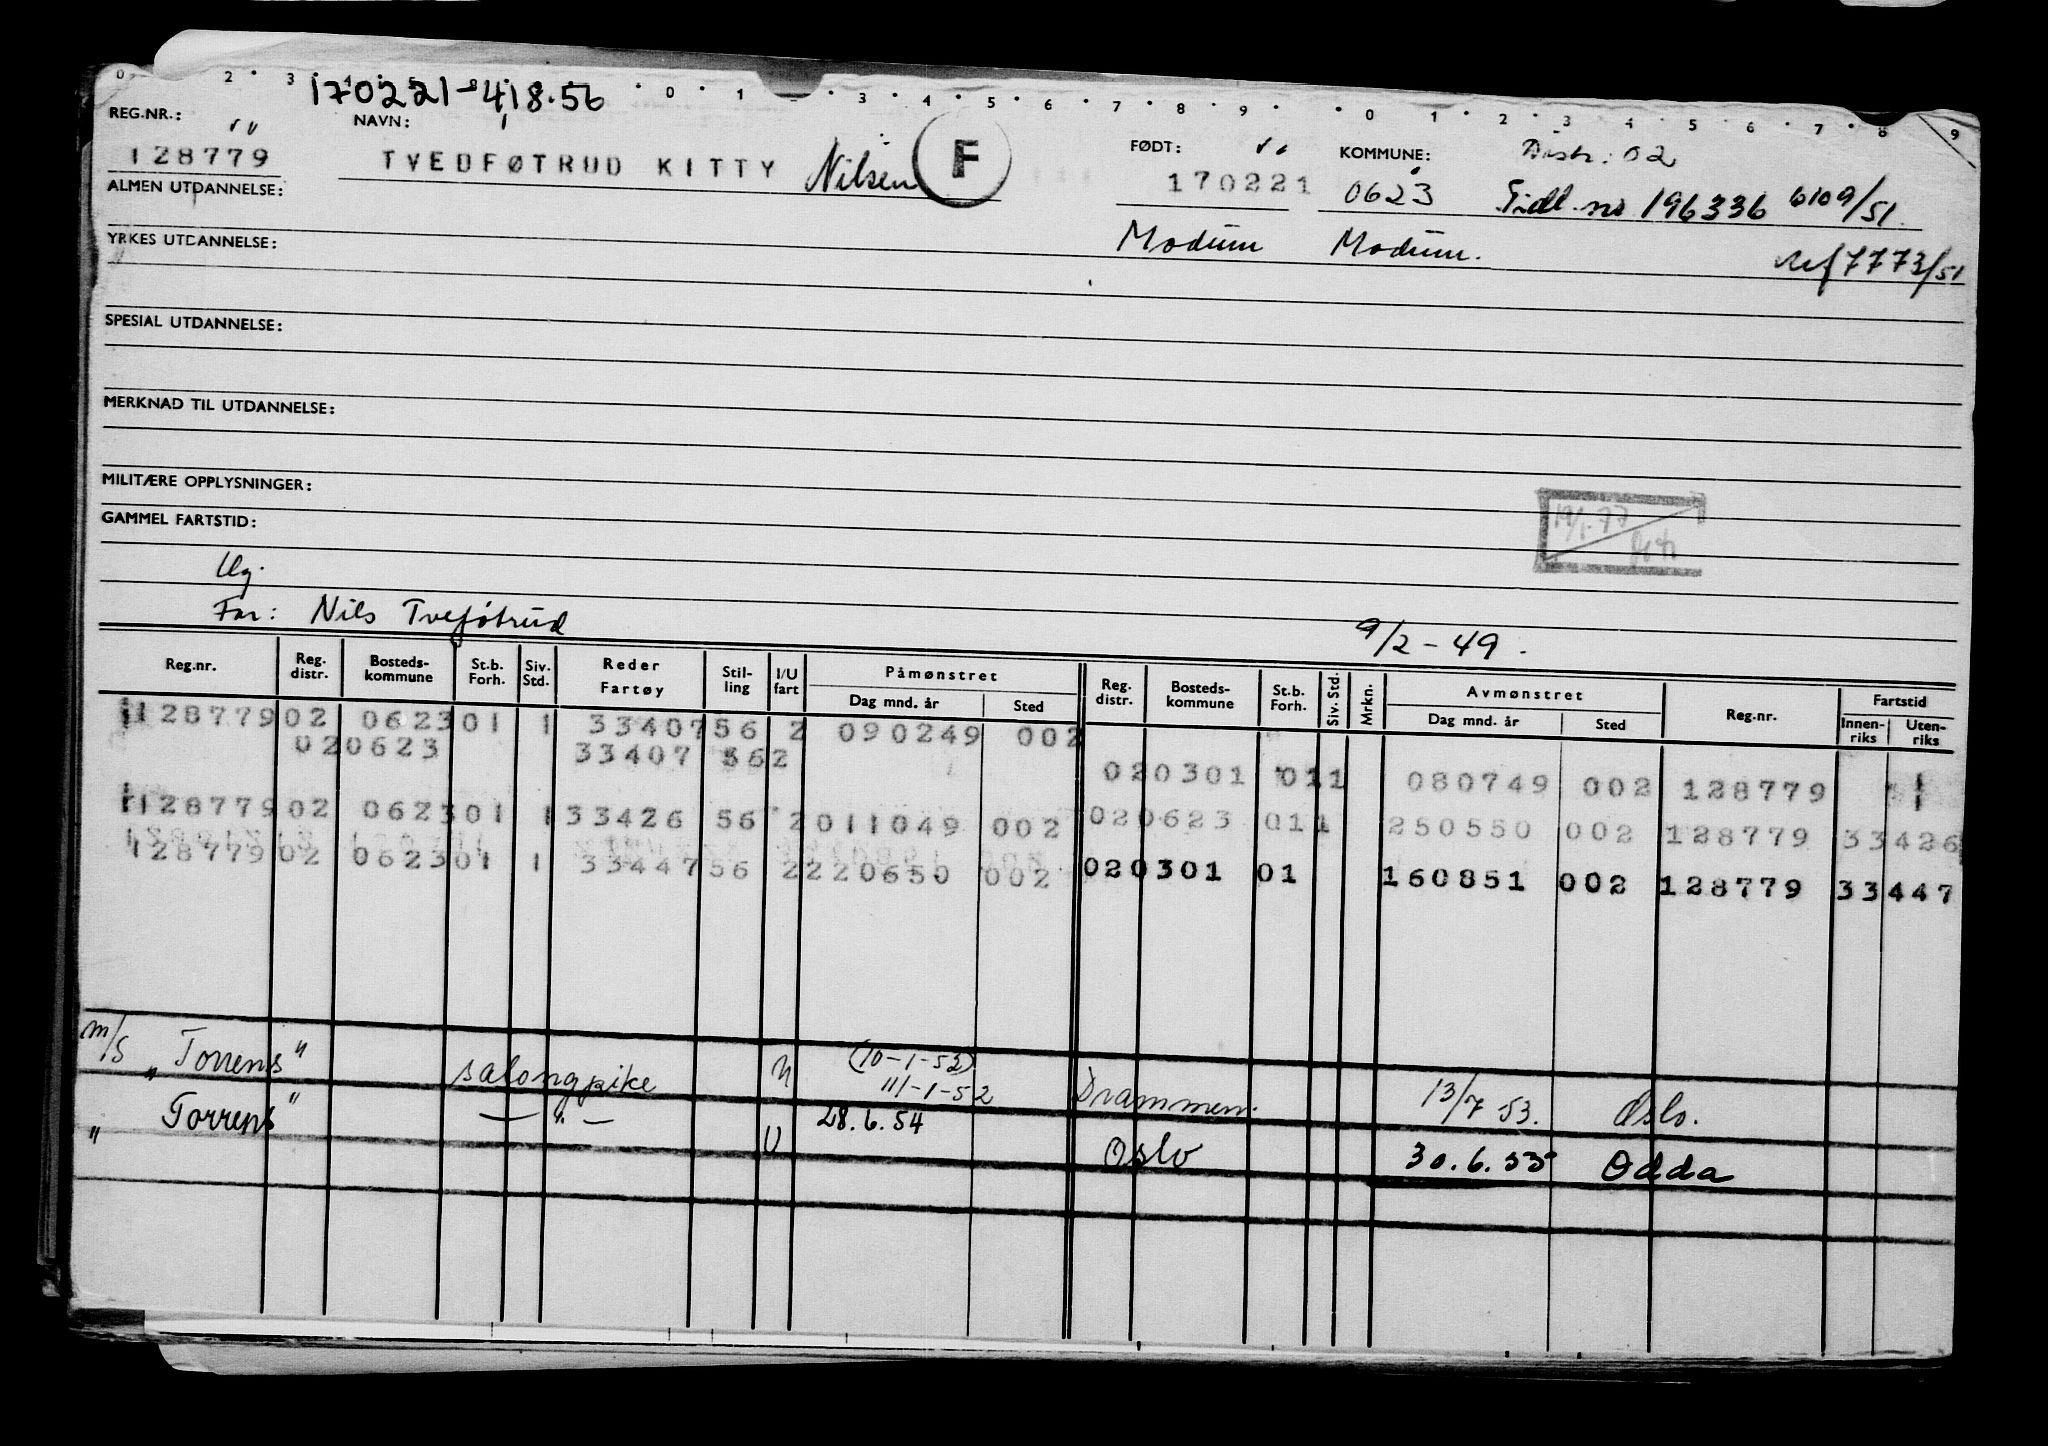 0 2 3 0 1 3 4 5 6 7 8 9 0 1 2 3 4 5 6 7 8 9
170221-418.56
REG.NR.: NAVN: FØDT: KOMMUNE: Distr: 02
128779 TVEDFØTRUD KITTY Nilsen F 170221 0623 Tidl. no 196336 6109/51.
ALMEN UTDANNELSE:
YRKES UTDANNELSE: Modum Modum. ref 7773/51
SPESIAL UTDANNELSE:
MERKNAD TIL UTDANNELSE:
MILITÆRE OPPLYSNINGER:
GAMMEL FARTSTID:
19/1-77
Ug.
Far: Nils Tveføtrud 9/2-49.
Reg.nr. Reg. distr. Bosteds-kommune St.b. Forh. Siv. Std. Reder Fartøy Stil-ling I/U fart Påmønstret Dag mnd. år Sted Reg. distr. Bosteds-kommune St.b. Forh. Siv. Std. Mrkn. Avmønstret Dag mnd. år Sted Reg.nr. Fartstid Innen-riks Uten-riks
128779 02 0623 01 1 33407 56 2 090249 002
020623 33407 562
020301 011 080749 002 128779
128779 02 0623 01 1 33426 56 2 011049 002 020623 011 250550 002 128779 33426
128779 02 0623 01 1 33447 56 2 220650 002 020301 01 160851 002 128779 33447
m/s "Torrens" salongpike U (10-1-52) 11/-1-52 Drammen. 13/7 53. Oslo.
" Torrens" — " — U 28.6.54 Oslo 30.6.55 Odda